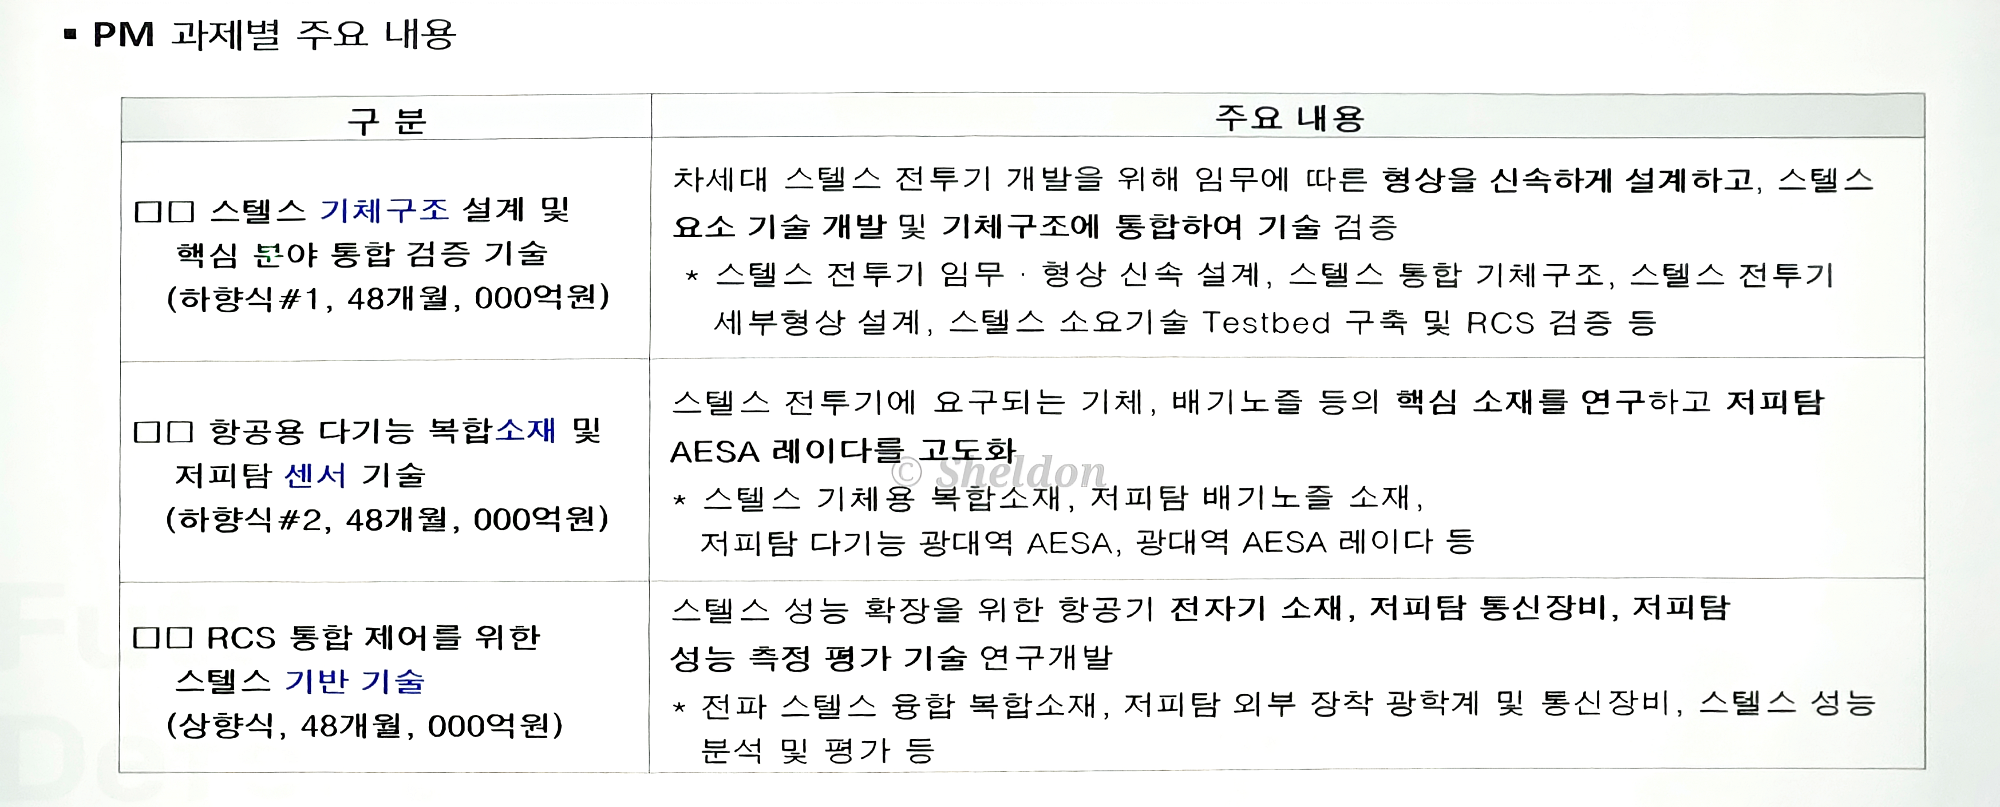 ▪ PM 과제별 주요 내용
구 분
주요 내용
□□ 스텔스 기체구조 설계 및
핵심 분야 통합 검증 기술
(하향식#1, 48개월, 000억원)
차세대 스텔스 전투기 개발을 위해 임무에 따른 형상을 신속하게 설계하고, 스텔스
요소 기술 개발 및 기체구조에 통합하여 기술 검증
* 스텔스 전투기 임무 · 형상 신속 설계, 스텔스 통합 기체구조, 스텔스 전투기
세부형상 설계, 스텔스 소요기술 Testbed 구축 및 RCS 검증 등
□□ 항공용 다기능 복합소재 및
저피탐 센서 기술
(하향식#2, 48개월, 000억원)
스텔스 전투기에 요구되는 기체, 배기노즐 등의 핵심 소재를 연구하고 저피탐
AESA 레이다를 고도화
© Sheldon
* 스텔스 기체용 복합소재, 저피탐 배기노즐 소재,
저피탐 다기능 광대역 AESA, 광대역 AESA 레이다 등
□□ RCS 통합 제어를 위한
스텔스 기반 기술
(상향식, 48개월, 000억원)
스텔스 성능 확장을 위한 항공기 전자기 소재, 저피탐 통신장비, 저피탐
성능 측정 평가 기술 연구개발
* 전파 스텔스 융합 복합소재, 저피탐 외부 장착 광학계 및 통신장비, 스텔스 성능
분석 및 평가 등